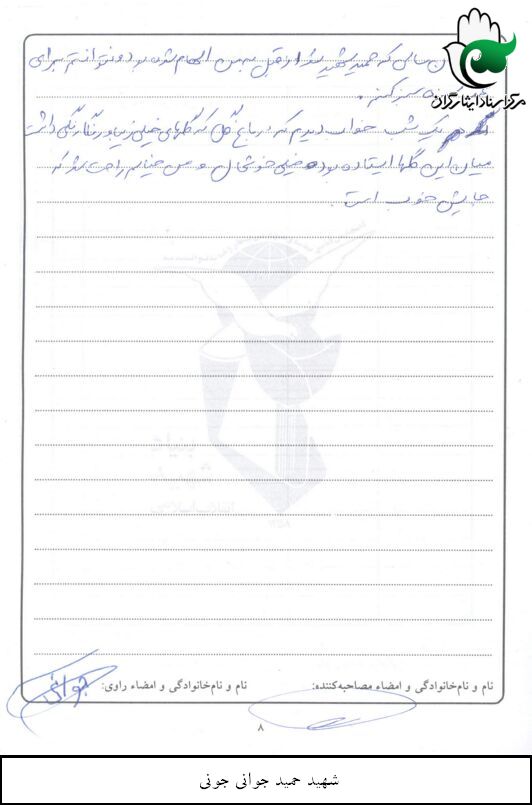 مرکز اسناد ایثارگران
سالی که حمید شهید شد از قبل به من الهام شده بود و نتوانستم برای
سبز کنم.
یک شب خواب دیدم که در باغ گل که گلهای خیلی زیبا و رنگارنگی داشت
میان این گلها ایستاده بود خیلی خوشحال و من خیالم راحت شد که
جایش خوب است.
نام و نام‌خانوادگی و امضاء مصاحبه‌کننده:
نام و نام‌خانوادگی و امضاء راوی: جوانی
۸
شهید حمید جوانی جونی